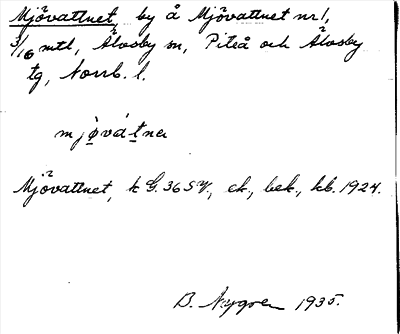 Mjövattnet, by å Mjövattnet nr 1,
3/16 mtl, Älvsby sn, Piteå och Älvsby
tg, Norrb. l.
Mjövattnet, k G. 36 SV., ck., bek., kb. 1924.
B. Nygren 1935.